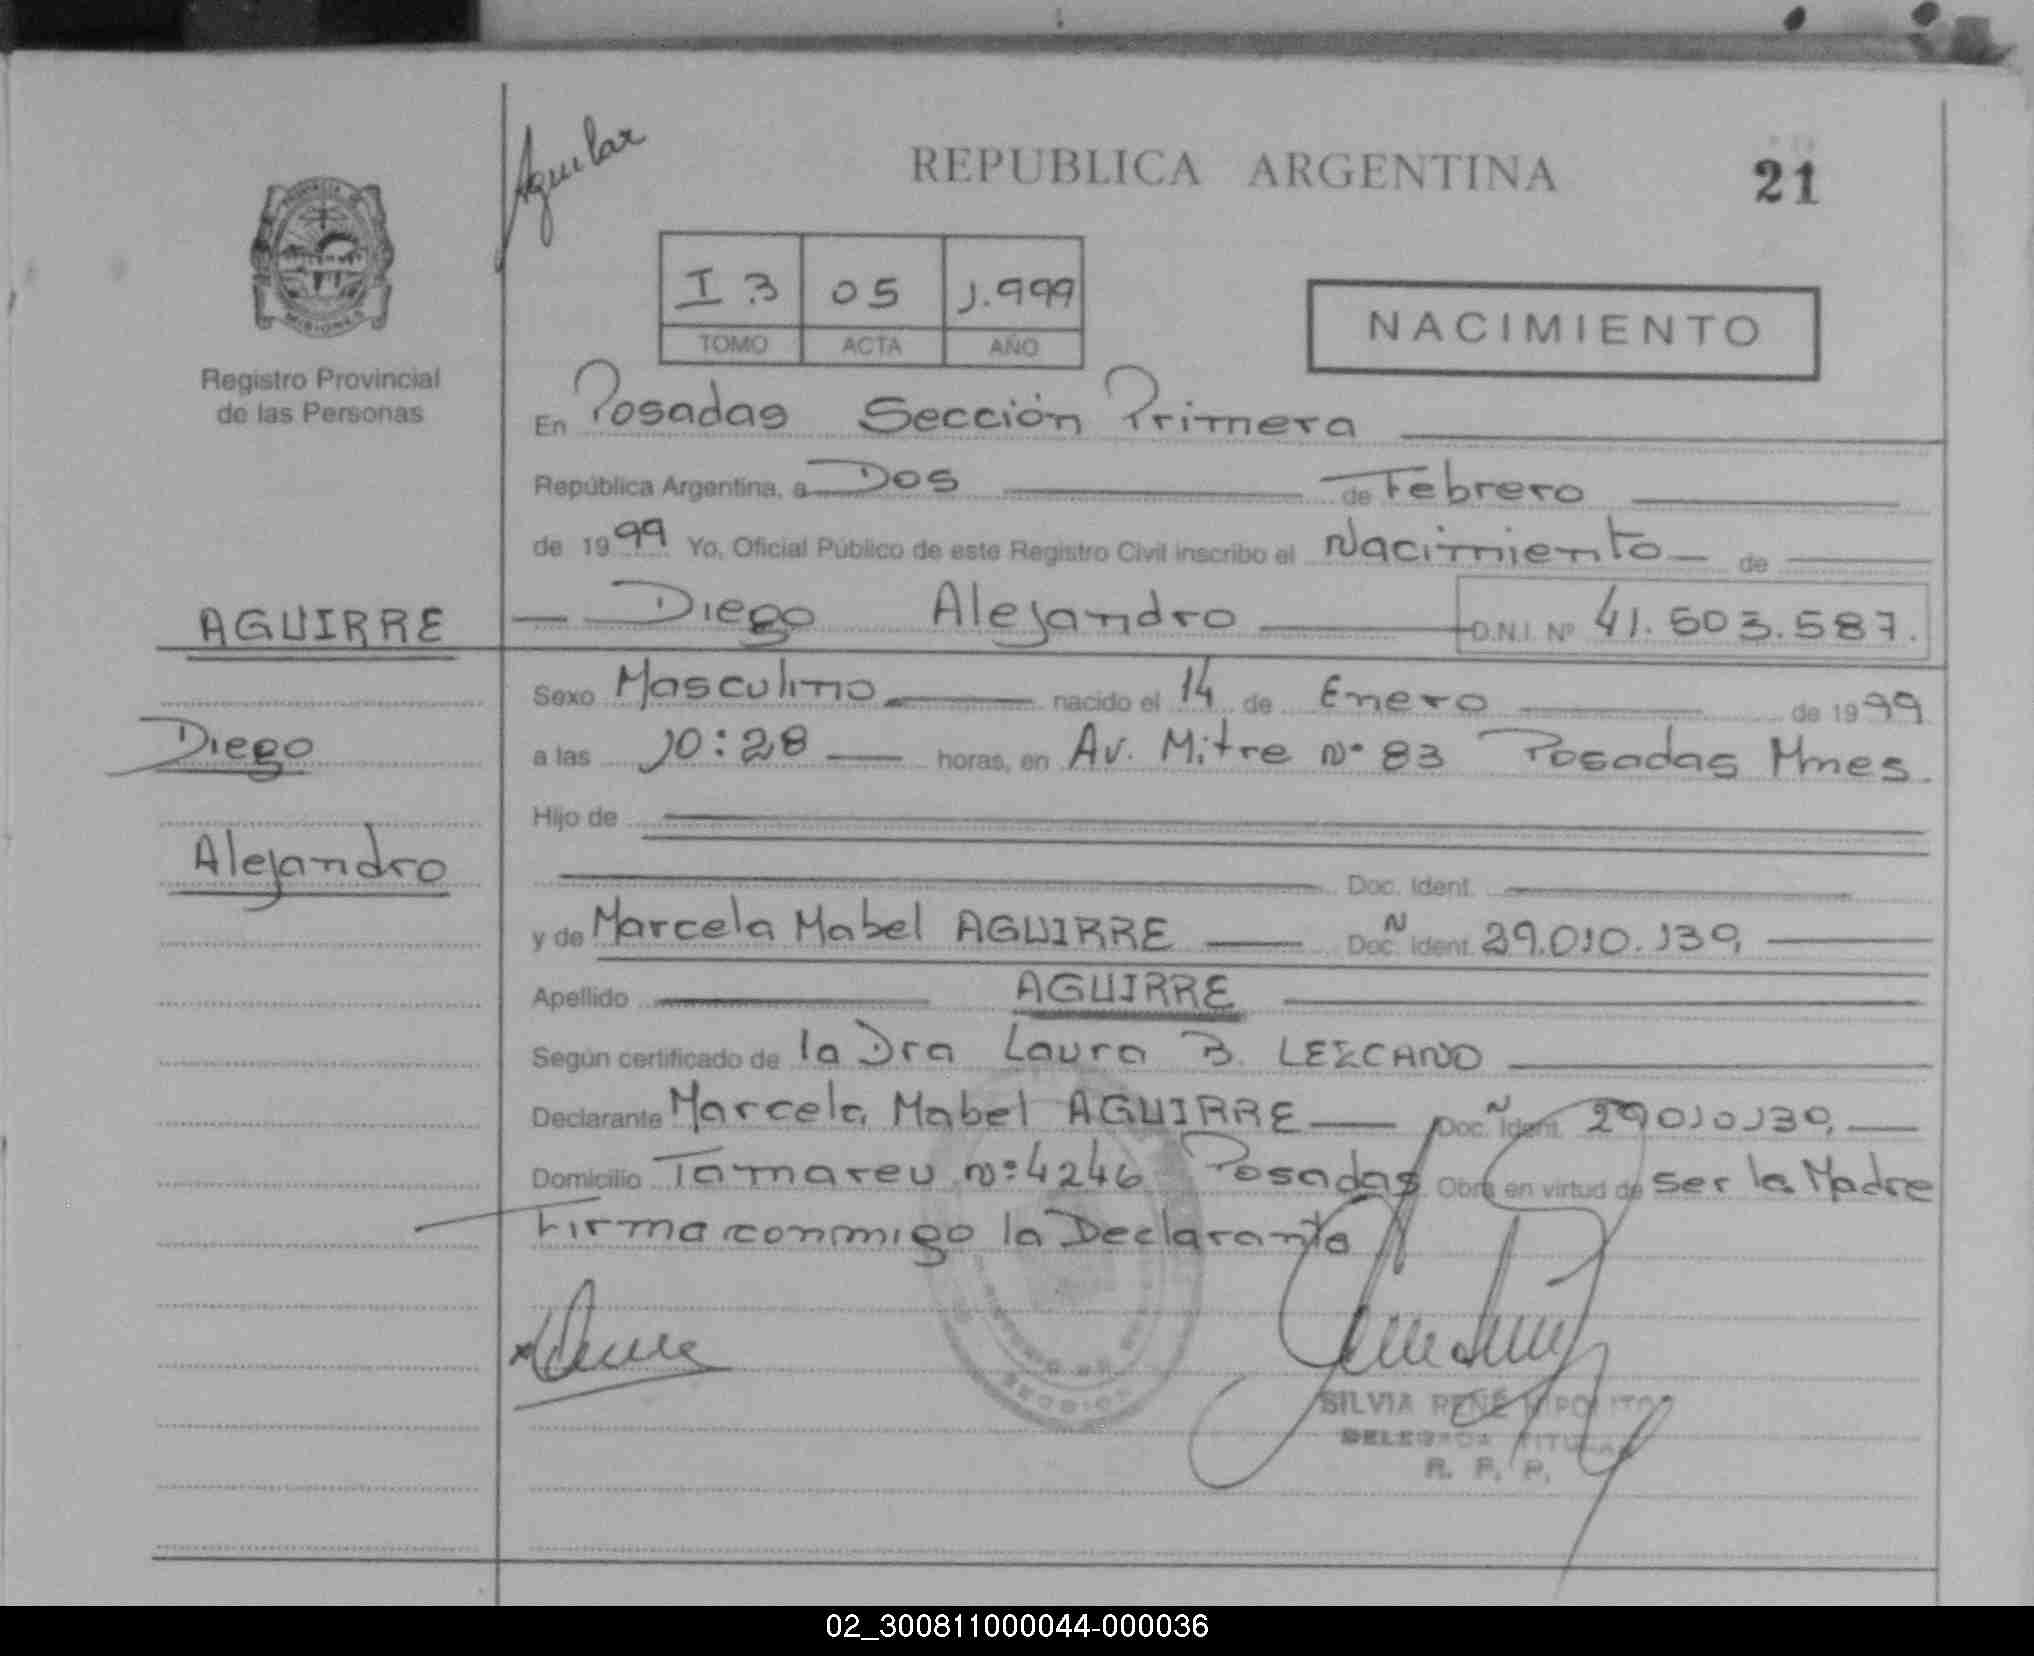 Aguilar
REPUBLICA ARGENTINA
21
I 3 05 1.999
TOMO ACTA AÑO
NACIMIENTO
MISIONES
Registro Provincial
de las Personas
En Posadas Sección Primera
República Argentina, a Dos de Febrero
de 1999 Yo, Oficial Público de este Registro Civil inscribo el Nacimiento de
AGUIRRE
Diego
Alejandro
Diego Alejandro D.N.I. Nº 41.503.587.
Sexo Masculino nacido el 14 de Enero de 1999
a las 10:28 horas, en Av. Mitre Nº 83 Posadas Mnes.
Hijo de
Doc. Ident.
y de Marcela Mabel AGUIRRE Doc. Ñ Ident. 29.010.139,
Apellido AGUIRRE
Según certificado de la Dra Laura B. LEZCANO
Declarante Marcela Mabel AGUIRRE Doc. Ñ Ident. 29010139,
Domicilio Tamareu Nº: 4246 Posadas Obra en virtud de ser la Madre
Firma conmigo la Declarante
SILVIA RENÉ HIPOLITO
DELEGADA TITULAR
R. P. P.
02_300811000044-000036